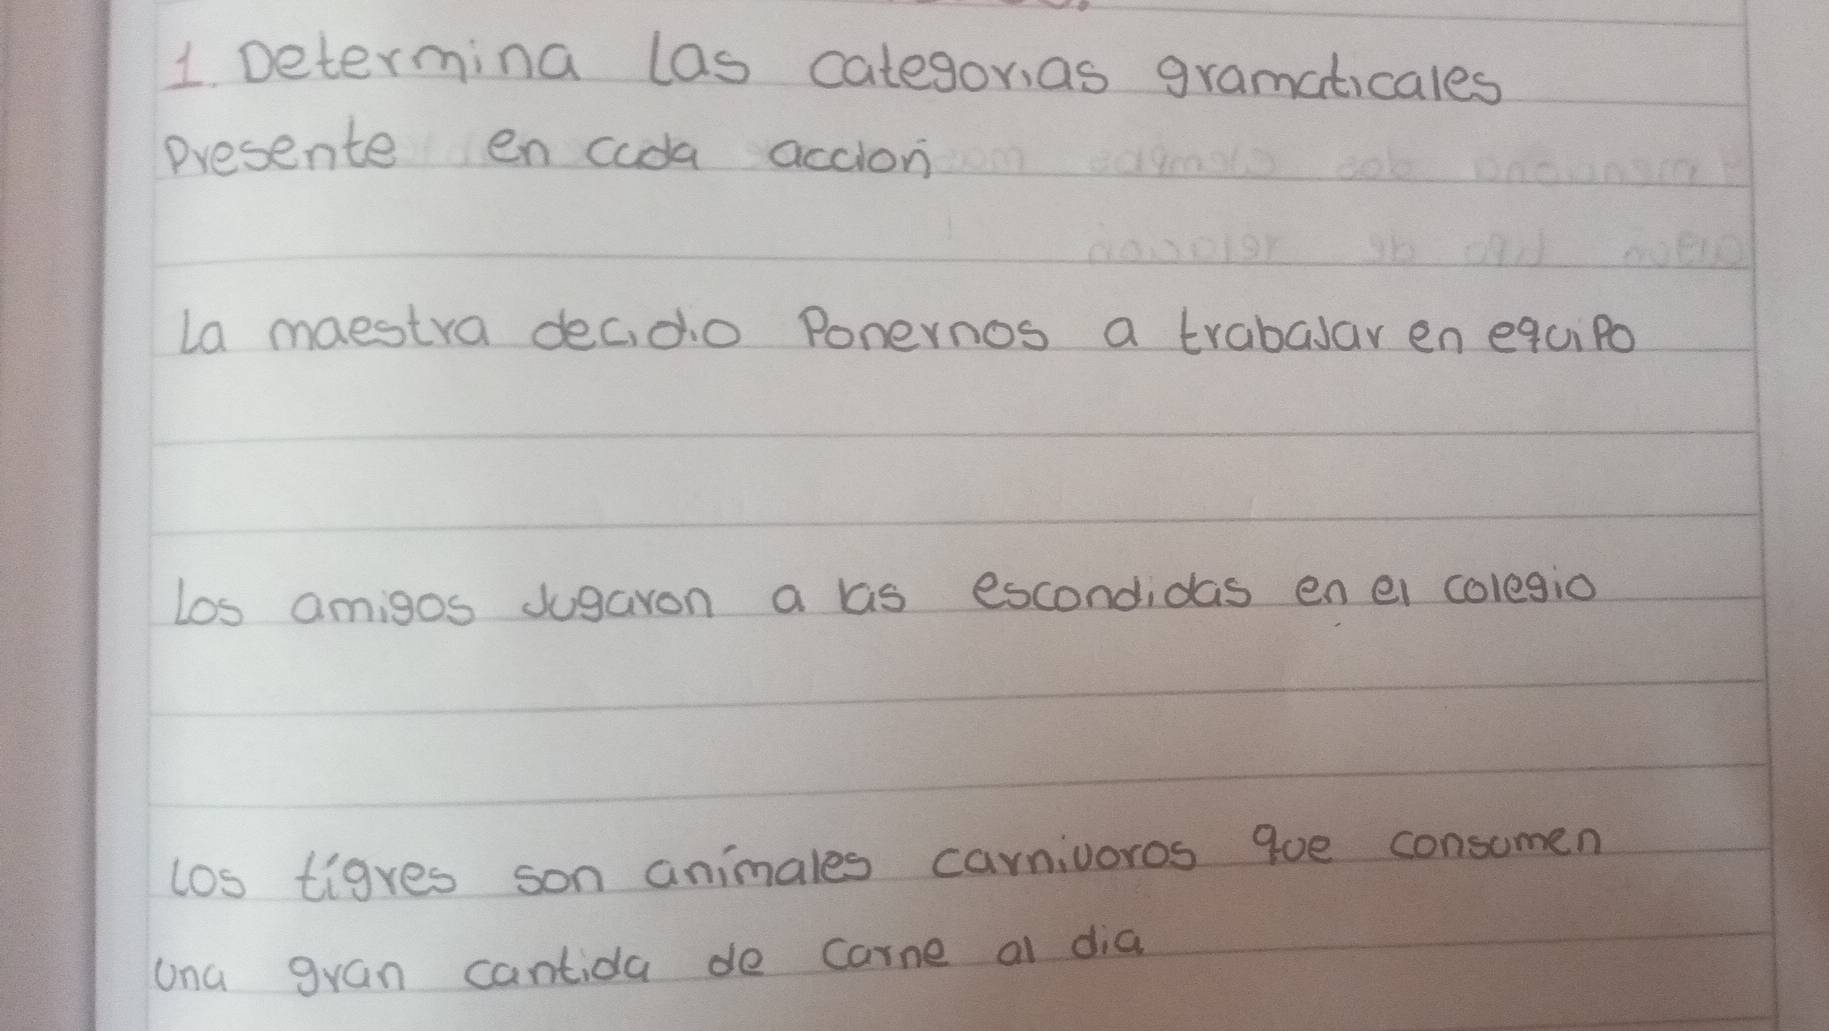 1. Determina las categorias gramaticales
presente en cada accion
La maestra decidio Ponernos a trabajar en equipo
Los amigos Jugaron a las escondidas en el colegio
Los tigres son animales carnivoros que consumen
una gran cantida de carne al dia